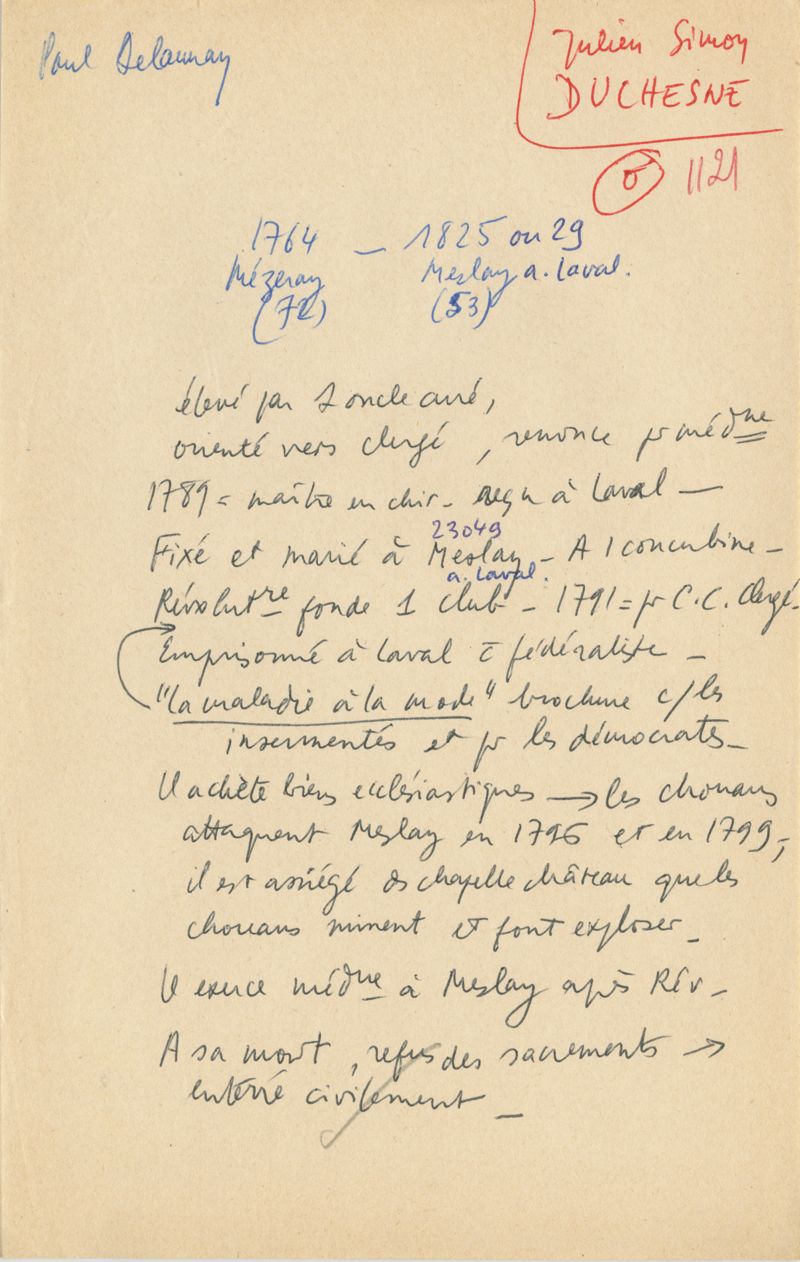 Paul Delaunay
Julien Simon
DUCHESNE
1121
1764 – 1825 ou 29
Mézeray Meslay a. Laval.
(72) (53)
élevé par 1 oncle curé,
orienté vers clergé, renonce pr médne
1789 = maître en chir. reçu à Laval —
23049
Fixé et marié à Meslay – A 1 concubine –
a. Laval.
Révolutre fonde 1 club – 1791 = pr C.C. Clergé –
Emprisonné à Laval c̄ fédéraliste –
"la maladie à la mode" brochure c/ les
insermentés et pr les démocrates –
Il achète biens ecclésiastiques → les chouans
attaquent Meslay en 1796 et en 1799 –,
il est assiégé ds chapelle château que les
chouans minent et font exploser –
Il exerce médne à Meslay après Rév –
A sa mort, refus des sacrements →
enterré civilement –